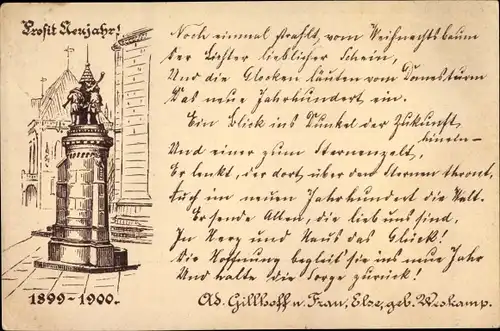 Prosit Neujahr!
Noch einmal strahlt, vom Weihnachtsbaum
Der Lichter lieblicher Schein,
Und die Glocken läuten vom Domesturm
Das neue Jahrhundert ein.
Ein Blick ins Dunkel der Zukunft
hinein –
Und einer zum Sternenzelt,
Er lenkt, der dort über den Sternen thront,
Auch im neuen Jahrhundert die Welt.
Er sende Allen, die lieb uns sind,
In Herz und Haus das Glück!
Die Hoffnung begleit sie ins neue Jahr
Und halte die Sorge zurück!
1899–1900.
Ad. Gillhoff u. Frau, Else, geb. Weskamp.